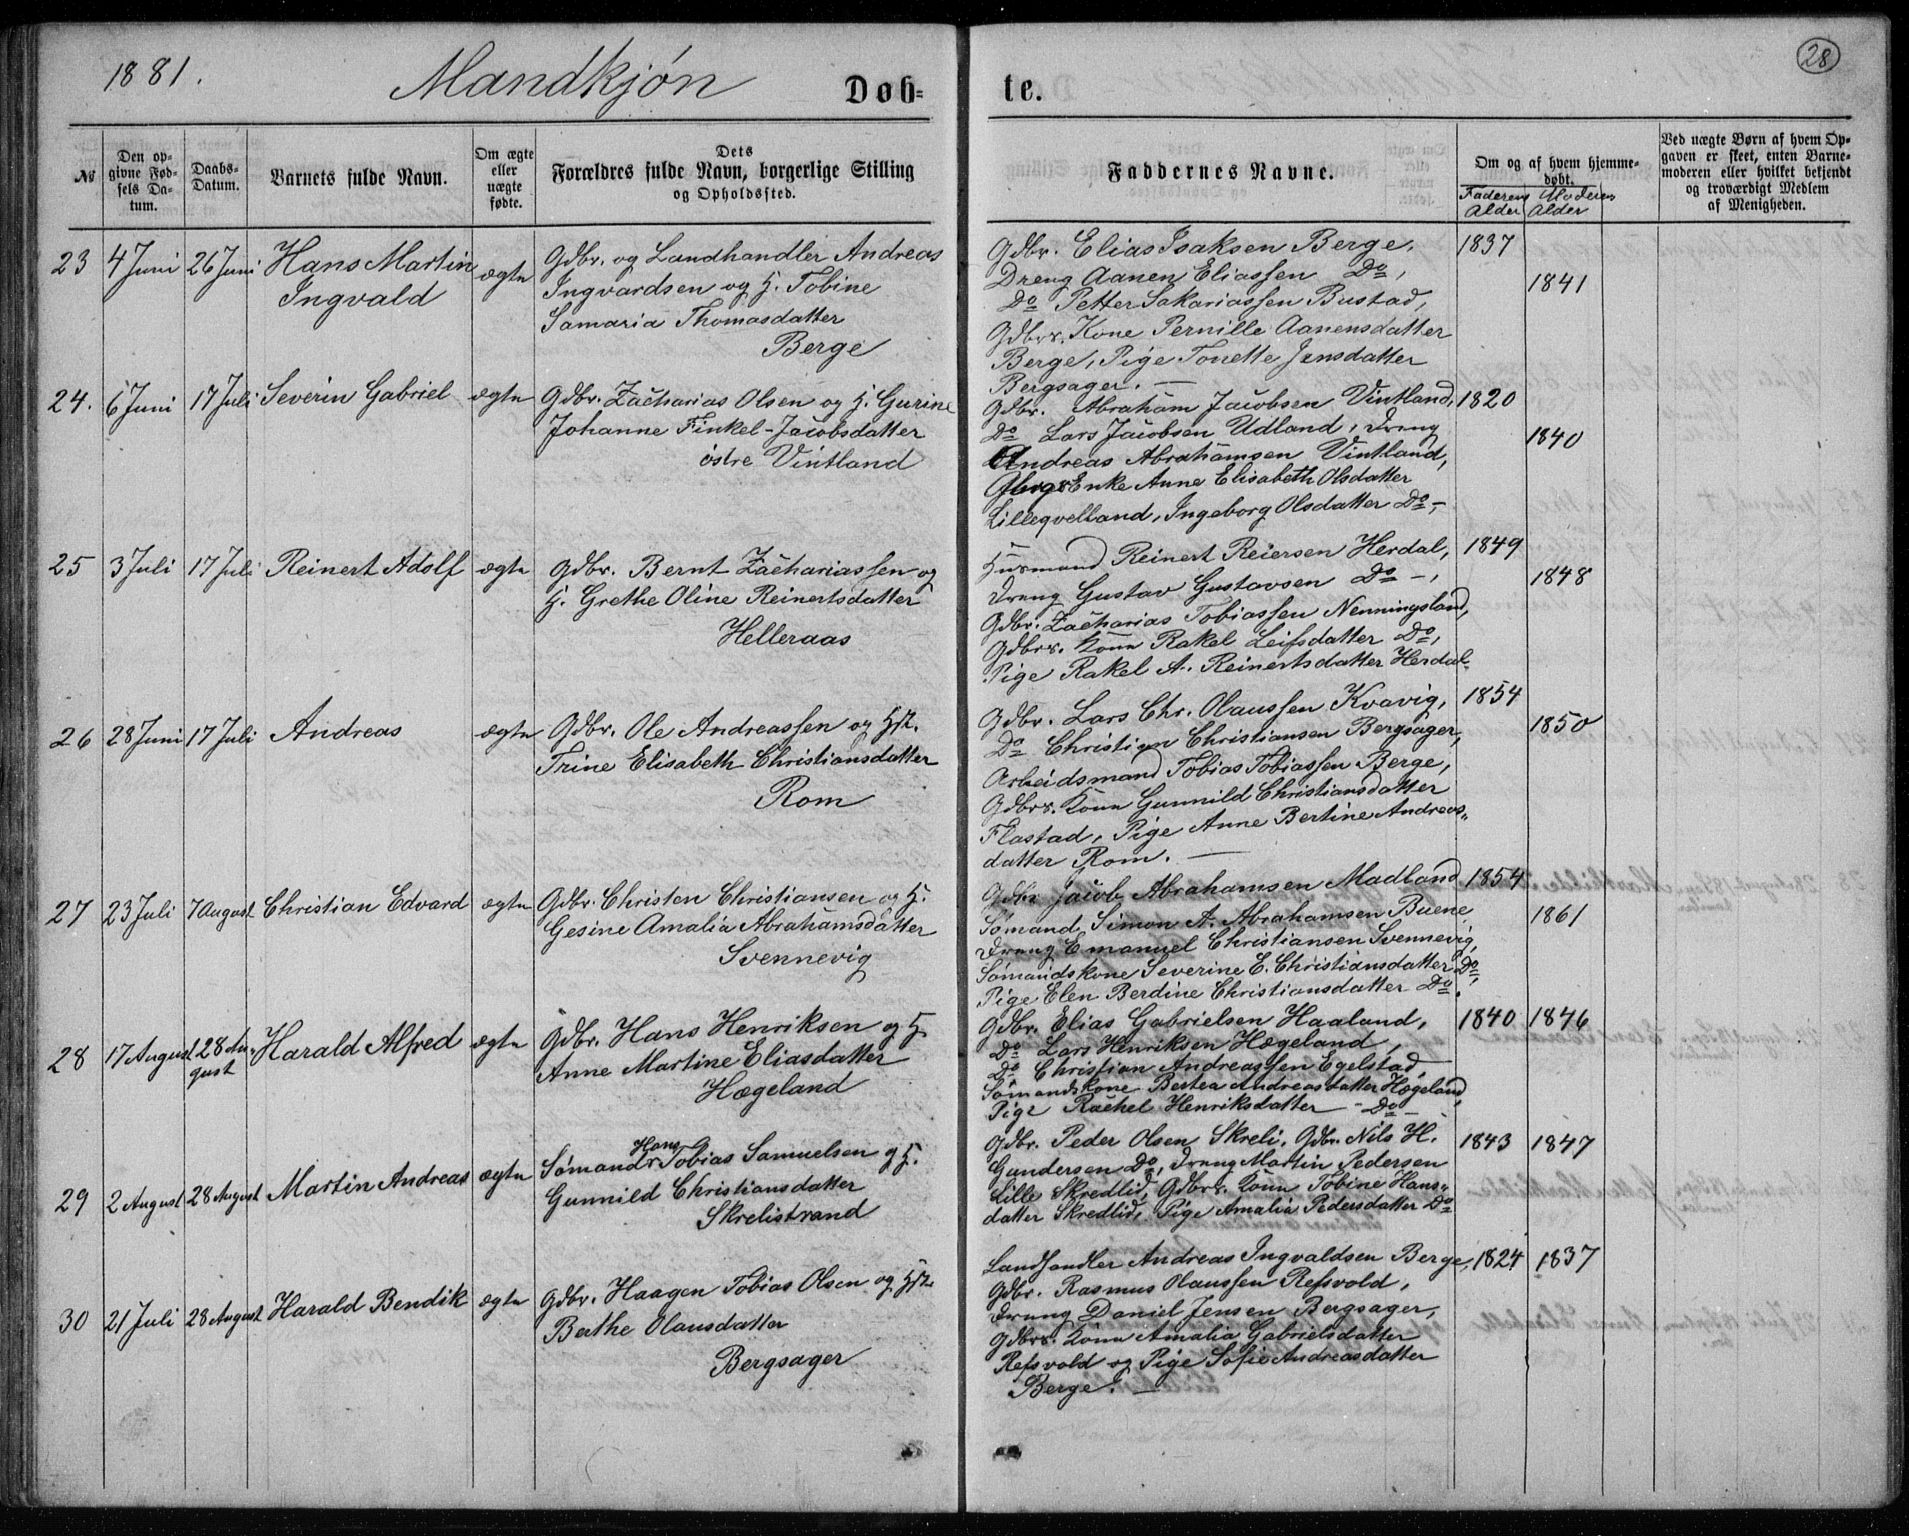 1881. Mandkjøn Døb-
te. 28
№
Den opgivne Fødsels Datum.
Daabs-Datum.
Barnets fulde Navn.
Om ægte eller uægte fødte.
Dets Forældres fulde Navn, borgerlige Stilling og Opholdssted.
Faddernes Navne.
Om og af hvem hjemmedøbt.
Faderens Alder
Moderens Alder
Ved uægte Børn af hvem Opgaven er skeet, enten Barnemoderen eller hvilket bekjendt og troværdigt Medlem af Menigheden.
23 4 Juni 26 Juni Hans Martin
Ingvald
ægte
Gdbr. og Landhandler Andreas
Ingvardsen og H. Tobine
Samaria Thomasdatter
Berge
Gdbr. Elias Isaksen Berge,
Dreng Aanen Eliassen Do,
Do Petter Sakariassen Bustad,
Gdbrs. Kone Pernille Aanensdatter
Berge, Pige Tonette Jensdatter
Bergsager. —
1837
1841
24. 6 Juni 17 Juli Severin Gabriel
ægte
Gdbr. Zacharias Olsen og H. Gurine
Johanne Finkel-Jacobsdatter
østre Vintland
Gdbr. Abraham Jacobsen Vintland,
Do Lars Jacobsen Udland, Dreng
Andreas Abrahamsen Vintland,
Enke Anne Elisabeth Olsdatter
Lilleqvelland, Ingeborg Olsdatter Do -,
1820
1840
25 3 Juli 17 Juli Reinert Adolf
ægte
Gdbr. Bernt Zachariassen og
H. Grethe Oline Reinertsdatter
Helleraas
Husmand Reinert Reiersen Herdal,
Dreng Gustav Gustavsen Do -,
Gdbr. Zacharias Tobiassen Nenningsland,
Gdbrs. Kone Rakel Leifsdatter Do,
Pige Rakel A. Reinertsdatter Herdal.
1849
1848
26 28 Juni 17 Juli Andreas
ægte
Gdbr. Ole Andreassen og Hst.
Trine Elisabeth Christiansdatter
Rom
Gdbr. Lars Chr. Olaussen Kvavig,
Do Christian Christiansen Bergsager,
Arbeidsmand Tobias Tobiassen Berge,
Gdbrs. Kone Gunnild Christiansdatter
Flastad, Pige Anne Bertine Andreas-
datter Rom. —
1854
1850
27 23 Juli 7 August Christian Edvard
ægte
Gdbr. Christen Christiansen og H.
Gesine Amalia Abrahamsdatter
Svennevig
Gdbr Jacob Abrahamsen Madland
Sømand Simon A. Abrahamsen Buene
Dreng Emanuel Christiansen Svennevig,
Sømandskone Severine E. Christiansdatter Do,
Pige Elen Berdine Christiansdatter Do.
1854
1861
28 17 August 28 Au-
gust
Harald Alfred
ægte
Gdbr. Hans Henriksen og H
Anne Martine Eliasdatter
Hægeland
Gdbr. Elias Gabrielsen Haaland,
Do Lars Henriksen Hægeland,
Do Christian Andreassen Egelstad,
Sømandskone Bertea Andreasdatter Hægeland,
Pige Rachel Henriksdatter - Do -
1840 1846
29 2 August 28 August Martin Andreas
ægte
Hans
Sømand Tobias Samuelsen og H.
Gunnild Christiansdatter
Skrelistrand
Gdbr. Peder Olsen Skreli, Gdbr. Nils H.
Gundersen Do, Dreng Martin Pedersen
Lille Skredlid, Gdbrs. Kone Tobine Hans-
datter Skredlid, Pige Amalia Pedersdatter Do
1843 1847
30 21 Juli 28 August Harald Bendik
ægte
Gdbr. Haagen Tobias Olsen og Hst.
Berthe Olausdatter
Bergsager
Landhandler Andreas Ingvaldsen Berge,
Gdbr. Rasmus Olaussen Refsvold,
Dreng Daniel Jensen Bergsager,
Gdbrs. Kone Amalia Gabrielsdatter
Refsvold og Pige Sofie Andreasdatter
Berge. —
1824 1837